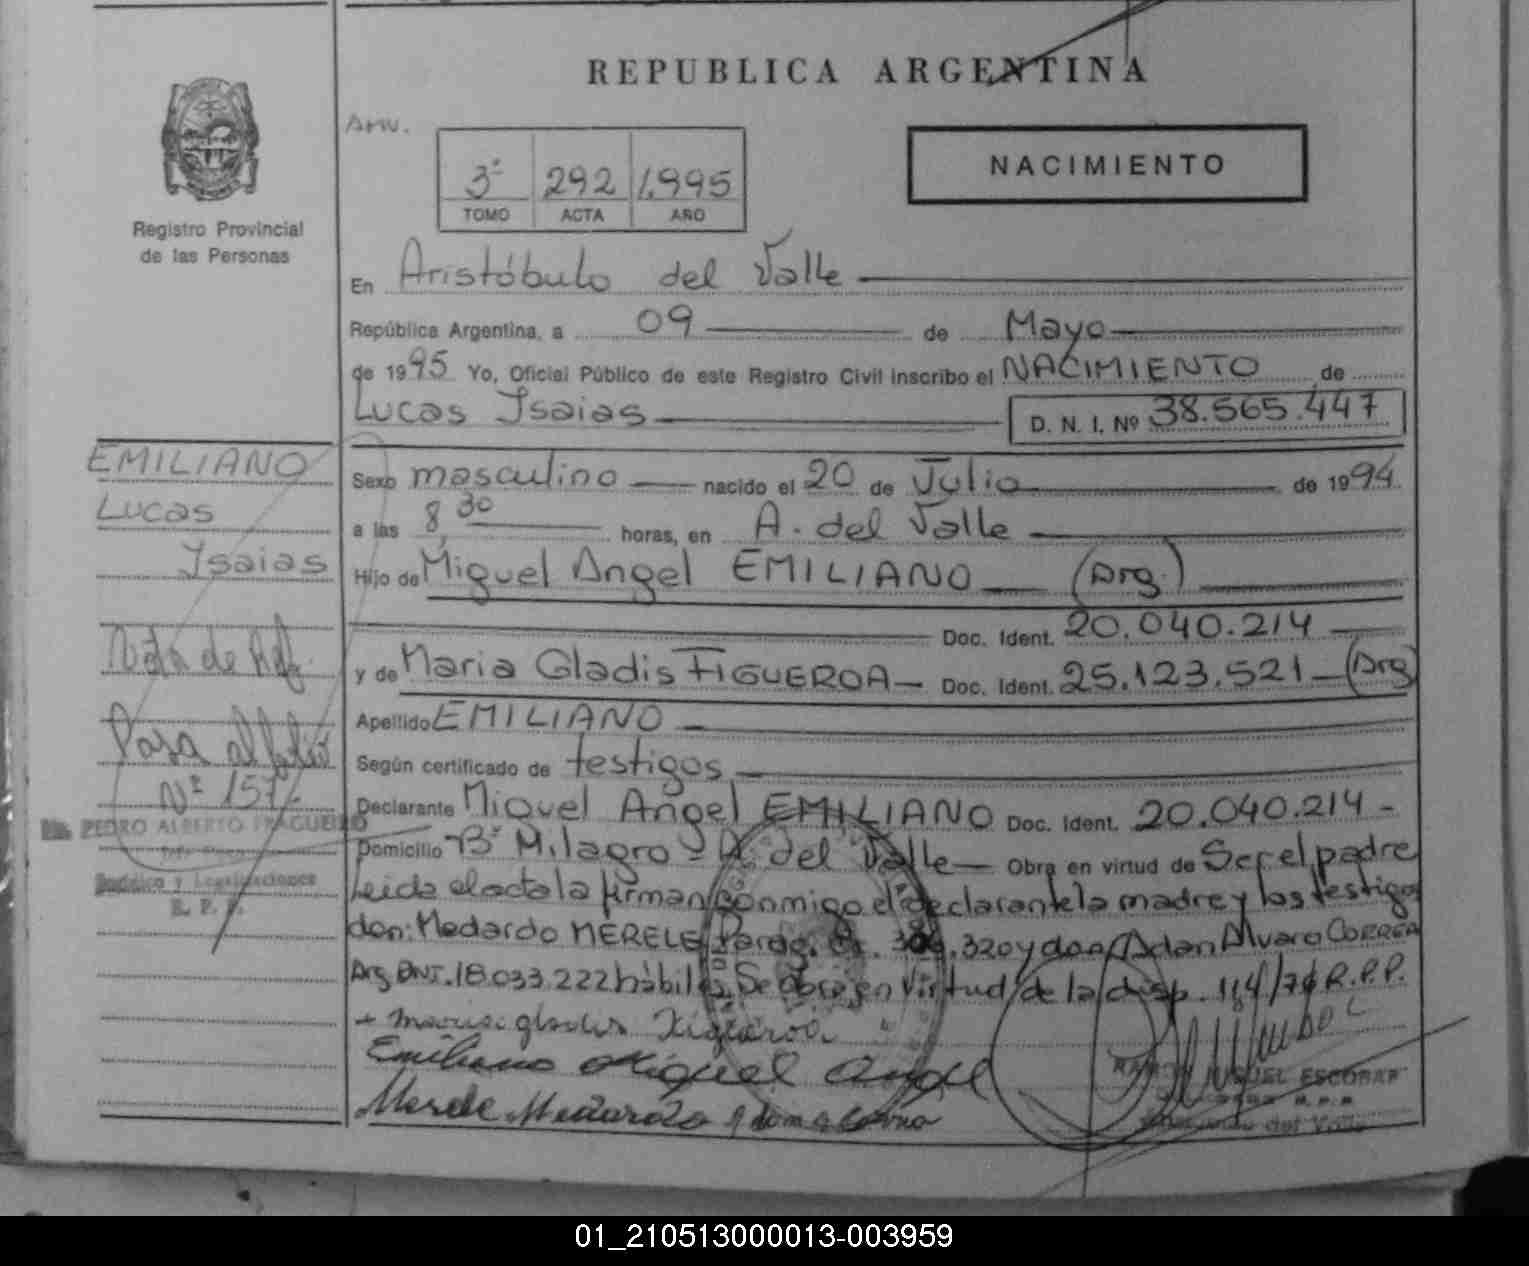 REPUBLICA ARGENTINA
AMV.
3º 292 1.995
TOMO ACTA AÑO
NACIMIENTO
Registro Provincial
de las Personas
En Aristóbulo del Valle
República Argentina, a 09 de Mayo
de 1995 Yo, Oficial Público de este Registro Civil inscribo el NACIMIENTO de
Lucas Isaias D. N. I. Nº 38.565.447
EMILIANO
Lucas
Isaias
Sexo masculino nacido el 20 de Julio de 1994
a las 8,30 horas, en A. del Valle
Hijo de Miguel Angel EMILIANO (Arg.)
Doc. Ident. 20.040.214
y de Maria Gladis FIGUEROA Doc. Ident. 25.123.521 (Arg)
Apellido EMILIANO
Según certificado de testigos
Declarante Miguel Angel EMILIANO Doc. Ident. 20.040.214
Domicilio Bº Milagro - A. del Valle Obra en virtud de Ser el padre
Leida el acta la firman conmigo el declarante la madre y los testigos
don: Medardo MERELE Parag. 320 y don Adan Alvaro CORREA
Arg. DNI. 18.033.222 hábiles. Se obra en Virtud de la disp. 114/76 R.P.P.
Nota de Ref.
Pasa al folio
Nº 157
PEDRO ALBERTO FRAGUEIRO
R. P. P.
+ Maria gladis Figueroa
Emiliano Miguel Angel
Merele Medardo
MIGUEL ESCOBAR
del Valle
01_210513000013-003959